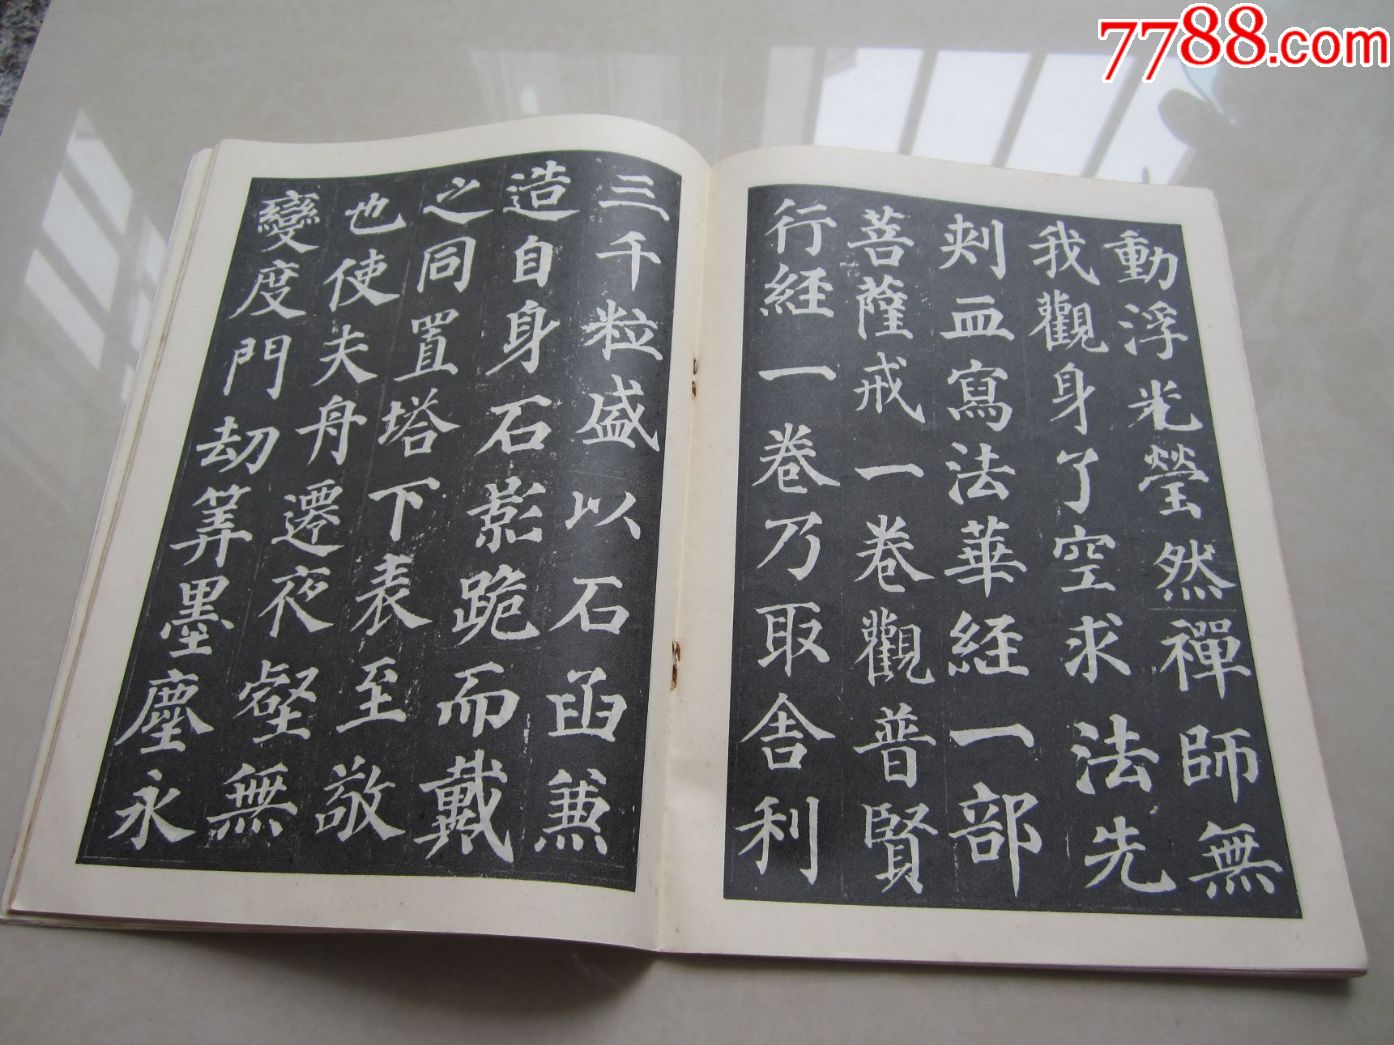 7788.com
動浮光瑩然禪師無
我觀身了空求法先
刾血寫法華經一部
菩薩戒一卷觀普賢
行經一卷乃取舍利
三千粒盛以石函兼
造自身石影跪而戴
之同置塔下表至敬
也使夫舟遷夜壑無
變度門劫筭墨塵永